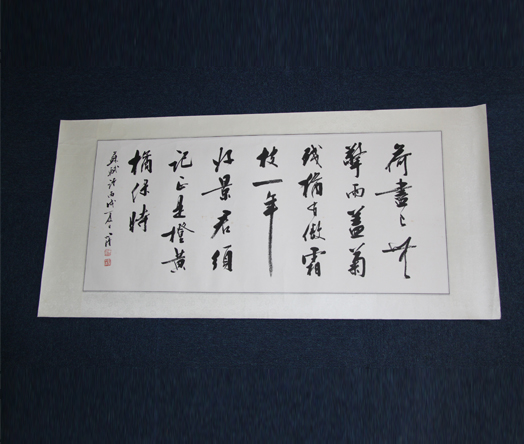 荷盡已無
擎雨蓋菊
殘猶有傲霜
枝一年
好景君須
記正是橙黄
橘綠時
蘇軾詩丙戌夏